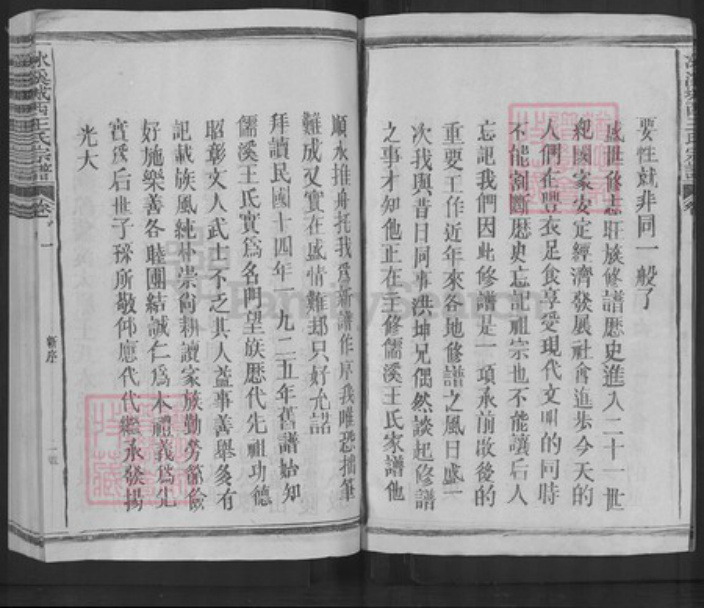 要性就非同一般了
盛世修志旺族修譜歷史進入二十一世
紀國家安定經濟發展社會進步今天的
人們在豐衣足食享受現代文明的同時
不能割斷歷史忘記祖宗也不能讓后人
忘記我們因此修譜是一項承前啟後的
重要工作近年來各地修譜之風日盛一
次我與昔日同事洪坤兄偶然談起修譜
之事才知他正在主修儒溪王氏家譜他
順水推舟托我爲新譜作序我唯恐拙筆
難成又實在盛情難却只好允諾
拜讀民國十四年一九二五年舊譜始知
儒溪王氏實爲名門望族歷代先祖功德
昭彰文人武士不乏其人益事善舉多有
記載族風純朴崇尚耕讀家族勤勞節儉
好施樂善各睦團結誠仁爲本禮義爲先
實爲后世子孫所敬仰應代代繼承發揚
光大
城西王氏宗譜
卷一
新序
FamilySearch